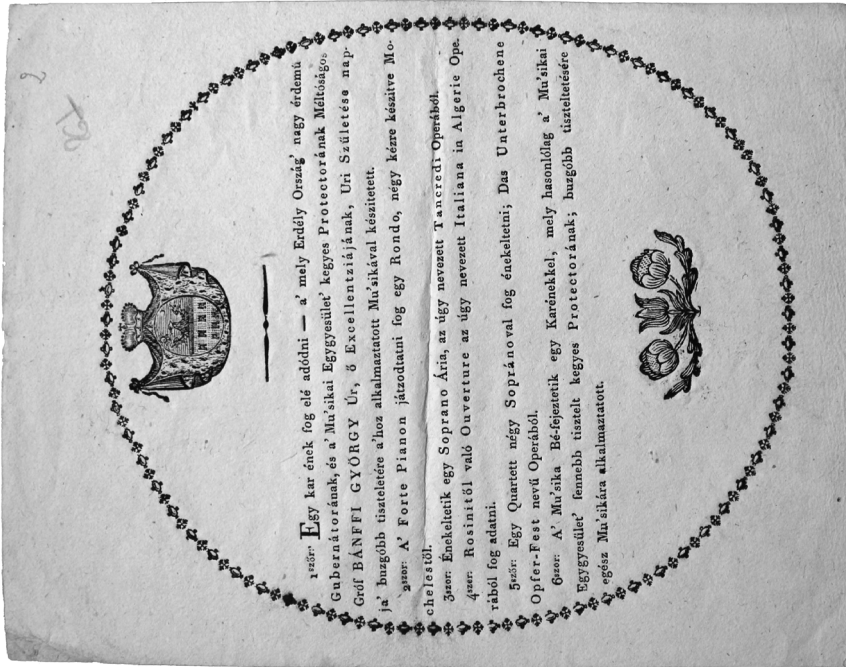 1ször: Egy kar ének fog elé adódni — a' mely Erdély Ország' nagy érdemű
Gubernátorának, és a' Mu'sikai Egygyesület' kegyes Protectorának Méltóságos
Gróf BÁNFFI GYÖRGY Úr, ő Excellentziájának, Uri Születése nap-
ja' buzgóbb tiszteletére a'hoz alkalmaztatott Mu'sikával készitetett.
2szor: A' Forte Pianon játzodtatni fog egy Rondo, négy kézre készitve Mo-
chelestől.
3szor: Énekeltetik egy Soprano Ária, az úgy nevezett Tancredi Operából.
4szer: Rosinitől való Ouverture az úgy nevezett Italiana in Algerie Ope-
rából fog adatni.
5ször: Egy Quartett négy Sopránoval fog énekeltetni; Das Unterbrochene
Opfer-Fest nevű Operából.
6szor: A' Mu'sika Bé-fejeztetik egy Karénekkel, mely hasonlólag a' Mu'sikai
Egygyesület' fennebb tisztelt kegyes Protectorának; buzgóbb tiszteltetésére
egész Mu'sikára alkalmaztatott.